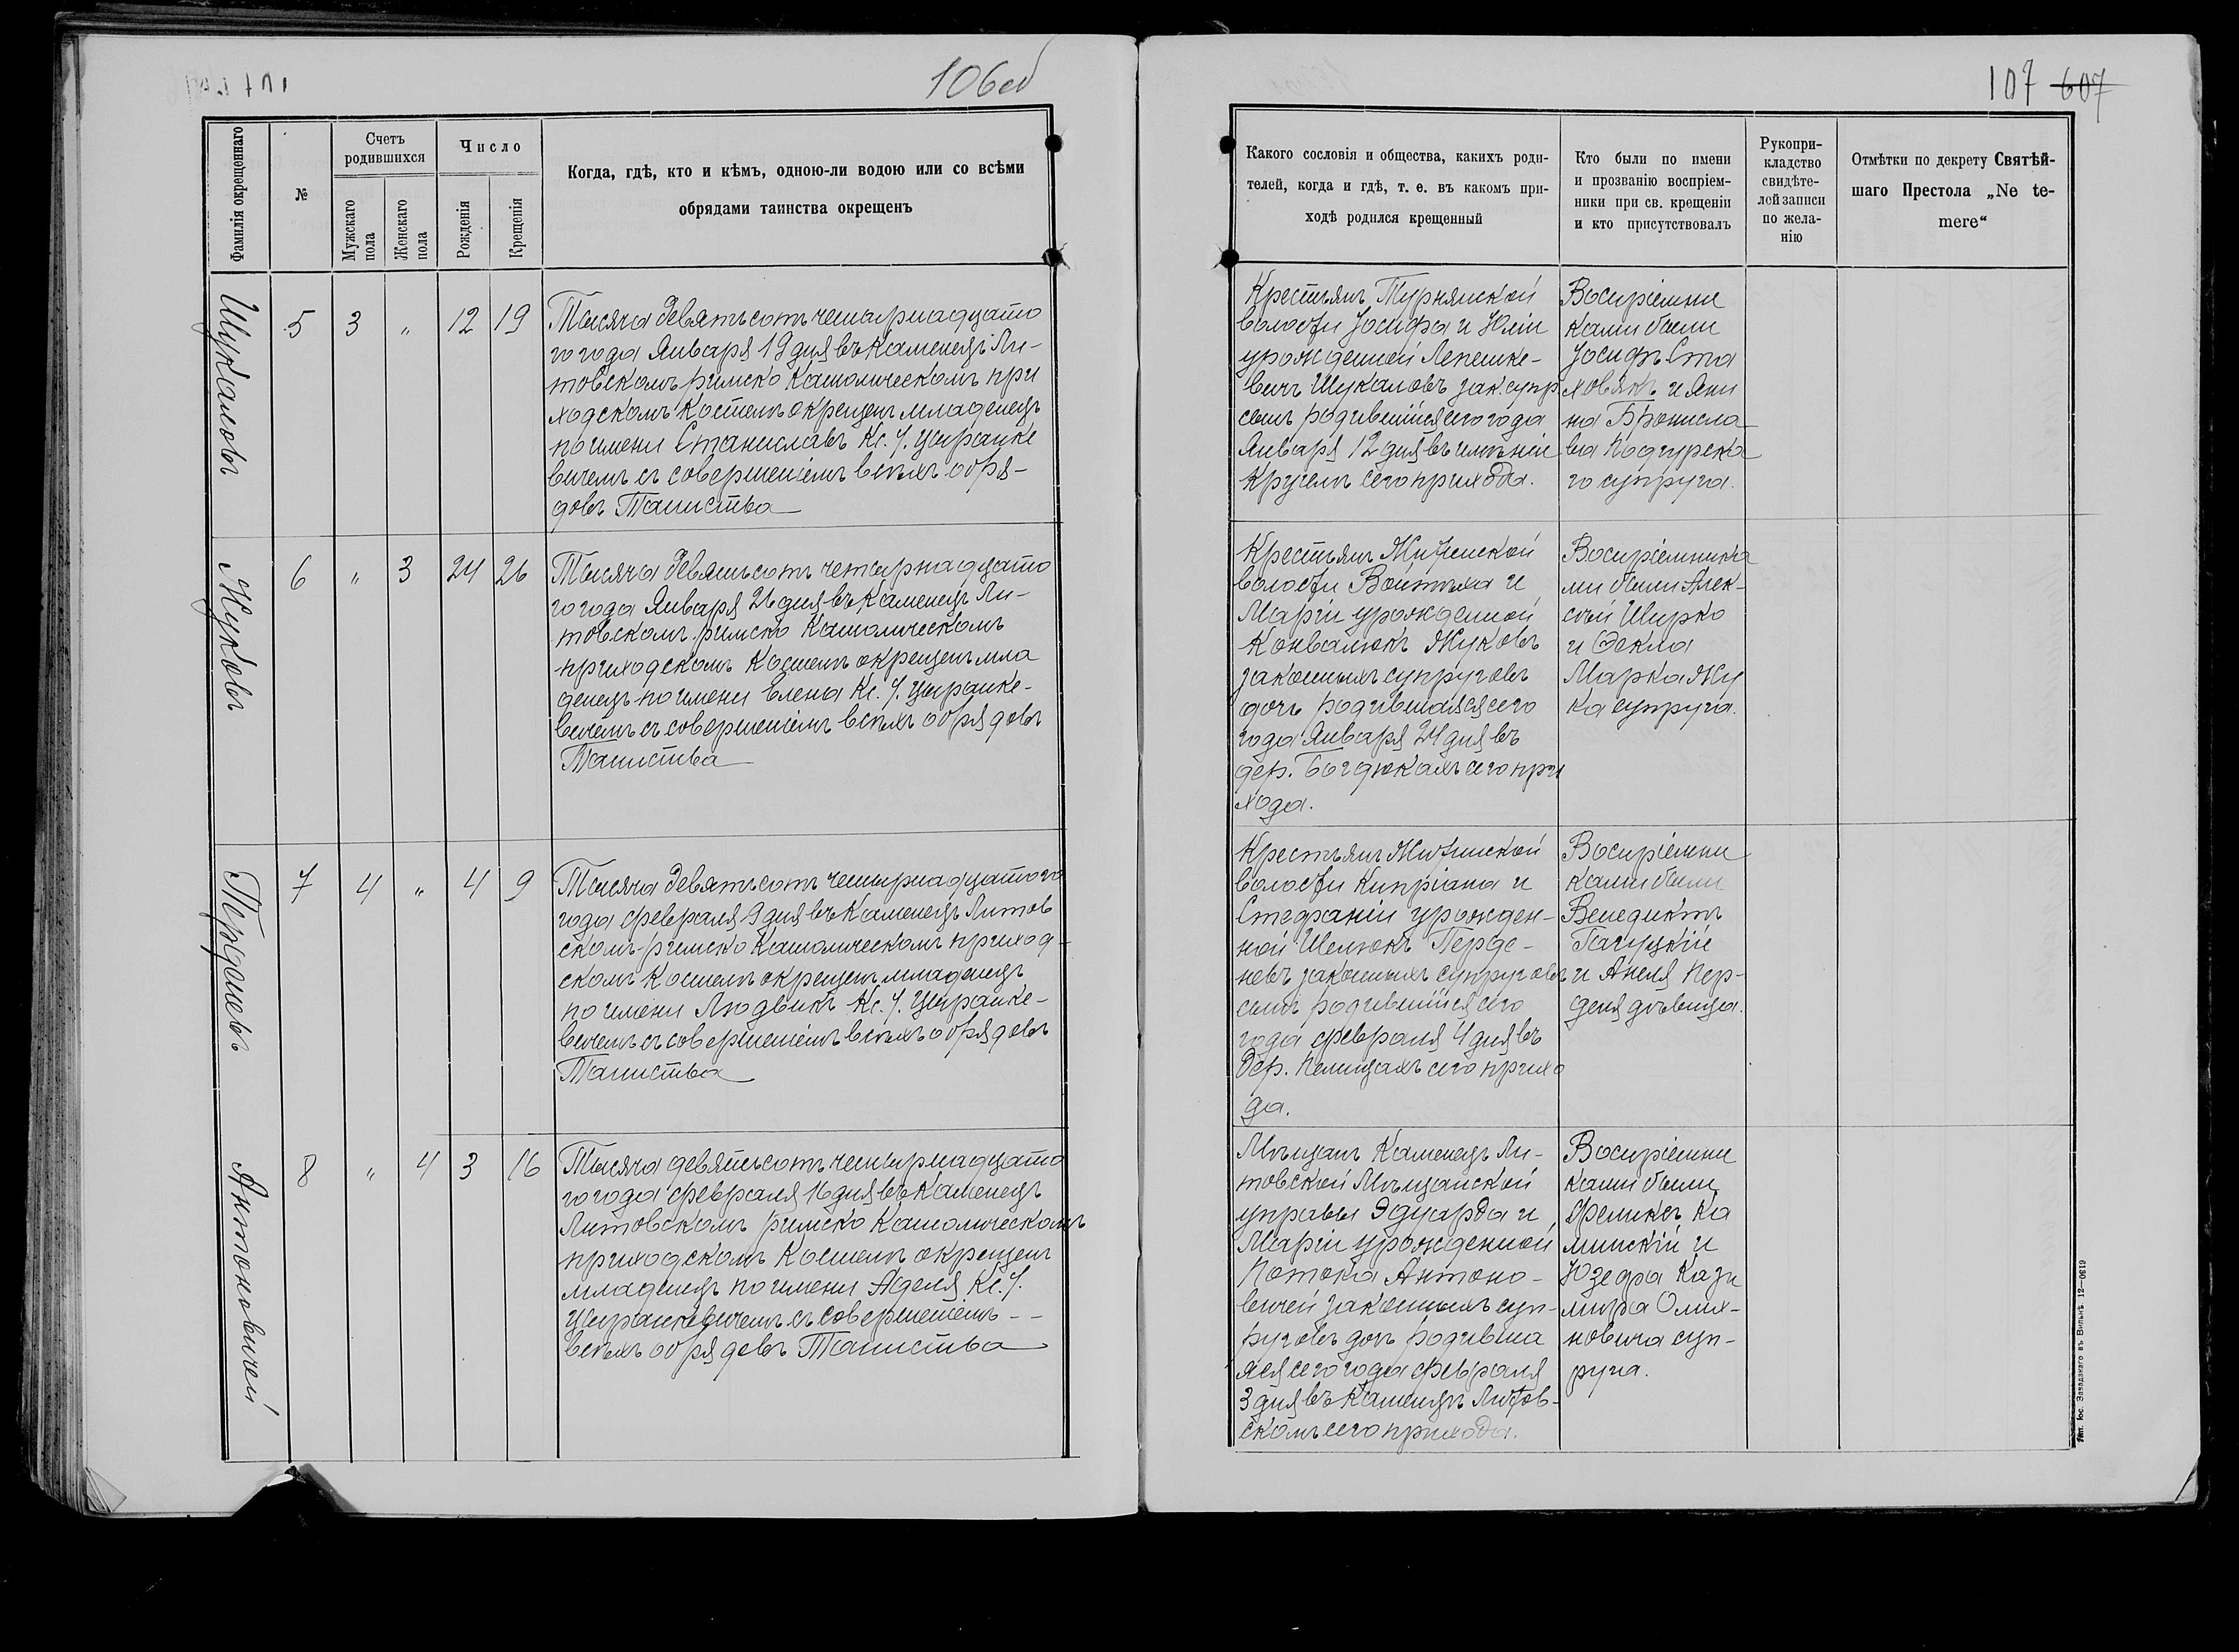 106об
Фамилія окрещеннаго
№
Счетъ
родившихся
Мужскаго
пола
Женскаго
пола
Число
Рожденія
Крещенія
Когда, гдѣ, кто и кѣмъ, одною-ли водою или со всѣми
обрядами таинства окрещенъ
Шукаловъ
5 3 „ 12 19
Тысяча девятьсотъ четырнадцато
го года Января 19 дня въ Каменецъ Ли-
товскомъ римско Католическомъ при
ходскомъ Костелѣ окрещенъ младенецъ
по имени Станиславъ Кс. У. Цыранке
вичемъ съ совершеніемъ всѣхъ обря-
довъ Таинства
Жуковъ
6 „ 3 24 26
Тысяча девятьсотъ четырнадцато
го года Января 26 дня въ Каменецъ Ли-
товскомъ римско Католическомъ
приходскомъ Костелѣ окрещенъ мла
денецъ по имени Елена Кс. У. Цыранке-
вичемъ съ совершеніемъ всѣхъ обрядовъ
Таинства
Перденевъ
7 4 „ 4 9
Тысяча девятьсотъ четырнадцатого
года февраля 9 дня въ Каменецъ Литов
скомъ-римско Католическомъ приход-
скомъ Костелѣ окрещенъ младенецъ
по имени Людвикъ Кс. У. Цыранке-
вичемъ съ совершеніемъ всѣхъ обрядовъ
Таинства
Антоновичей
8 „ 4 3 16
Тысяча девятьсотъ четырнадцато
го года февраля 16 дня въ Каменецъ
Литовскомъ римско Католическомъ
приходскомъ Костелѣ окрещенъ
младенецъ по имени Аделя Кс. У.
Цыранкевичемъ съ совершеніемъ - -
всѣхъ обрядовъ Таинства
107 607
Какого сословія и общества, какихъ роди-
телей, когда и гдѣ, т. е. въ какомъ при-
ходѣ родился крещенный
Кто были по имени
и прозванію воспріем-
ники при св. крещеніи
и кто присутствовалъ
Рукопри-
кладство
свидѣте-
лей записи
по жела-
нію
Отмѣтки по декрету Святѣй-
шаго Престола „Ne te-
mere“
Крестьянъ Турнянской
волости Іосифа и Юліи
урожденной Лепешке-
вичъ Шукаловъ зак. супр.
сынъ родившійся сего года
Января 12 дня въ имѣніи
Кругель сего прихода.
Воспріемни
ками были
Іосифъ Ста
ховякъ и Яни
на Бронисла
ва Подгурска
го супруга.
Крестьянъ Житинской
волости Войтѣха и
Маріи урожденной
Конвалюкъ Жуковъ
законныхъ супруговъ
дочь родившаяся сего
года Января 24 дня въ
дер. Богдюкахъ сего при
хода.
Воспріемника
ми были Алек-
сѣй Ширко
и Текла
Марка Жу
ка супруга.
Крестьянъ Житинской
волости Кипріана и
Стефаніи урожден-
ной Шелюкъ Перде-
невъ законныхъ супруговъ
сынъ родившійся сего
года февраля 4 дня въ
Дер. Пелищахъ сего прихо
да.
Воспріемни
ками были
Венедиктъ
Пагуцкій
и Анеля Пер-
деня дѣвица.
Мѣщанъ Каменецъ Ли-
товской Мѣщанской
управы Эдуарда и
Маріи урожденной
Потока Антоно-
вичей законныхъ суп-
руговъ дочь родивша
яся сего года февраля
3 дня въ Каменецъ Литов-
скомъ сего прихода.
Воспріемни
ками были
Феликсъ Ка
минскій и
Юзефа Кази
мира Олих-
новича суп-
руга.
Тип. Іос. Завадзкаго въ Вильнѣ. 12—0619